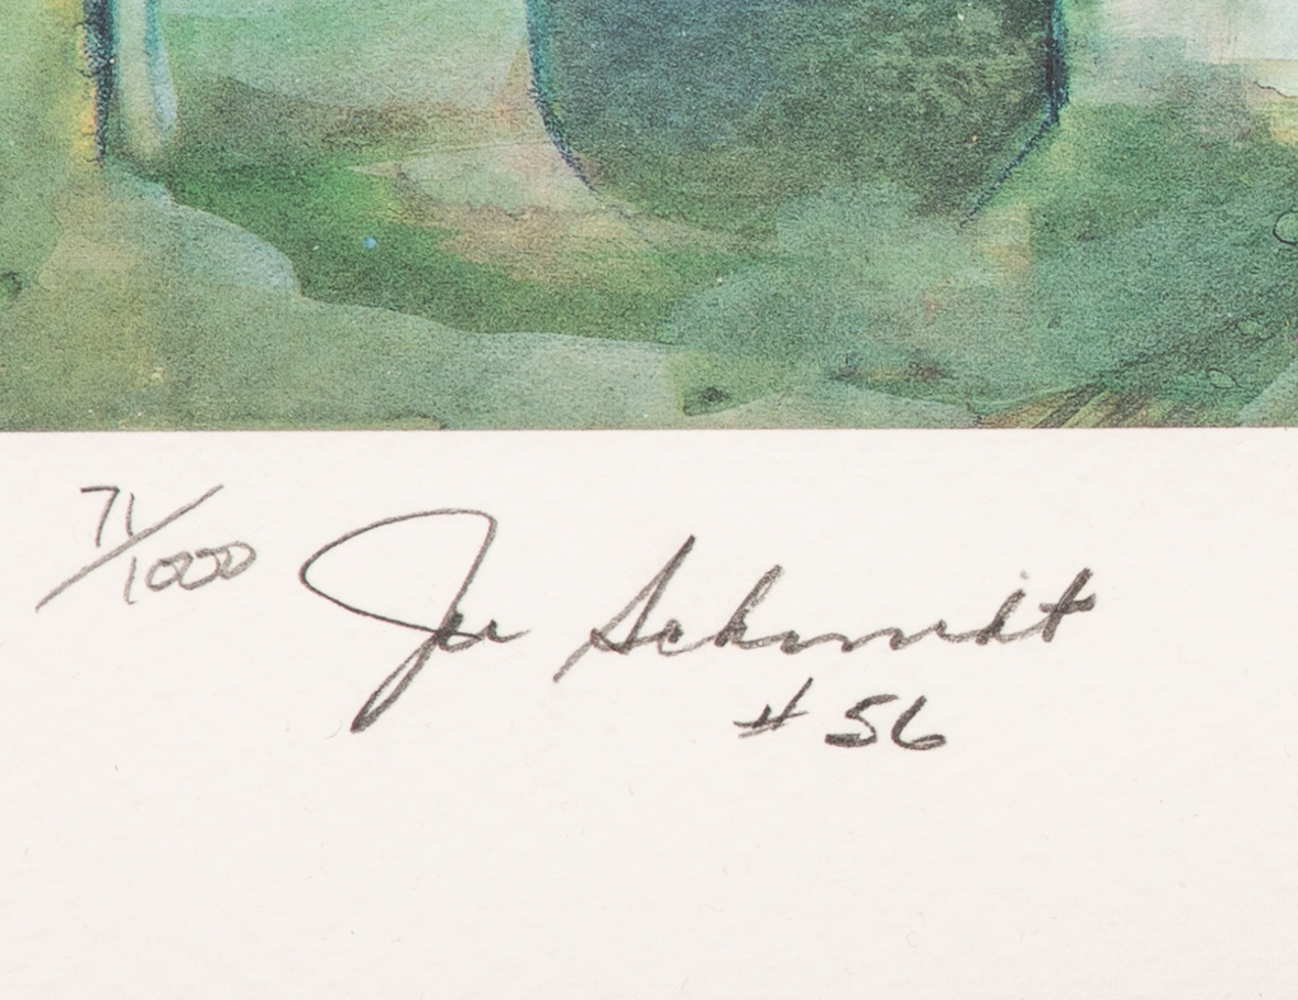 71/1000 Joe Schmidt
#56